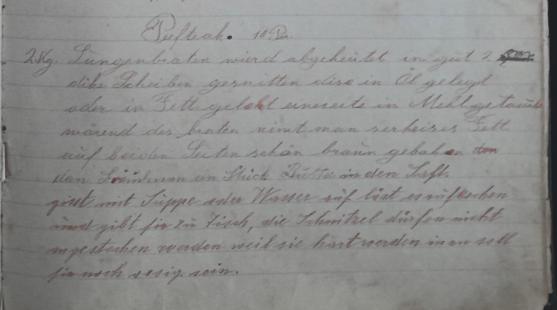 Pufteak. 10 P.
2 Kg. Lungenbraten wierd abgeheitet in gut 2
dike Scheiben gesnitten dise in Öl gelegd
oder in Fett eineseite in Mehl getauct
wärend des braten nimt man serheises Fett
auf beiden Seiten schön braun gebaken
dan ein Stück Butter in den Saft.
gist mit Suppe oder Wasser auf läst es aufkochen
und gibt sie zu Tisch, die Schnitzel dürfen nicht
angestochen werden weil sie hart werden man soll
sie noch sein.